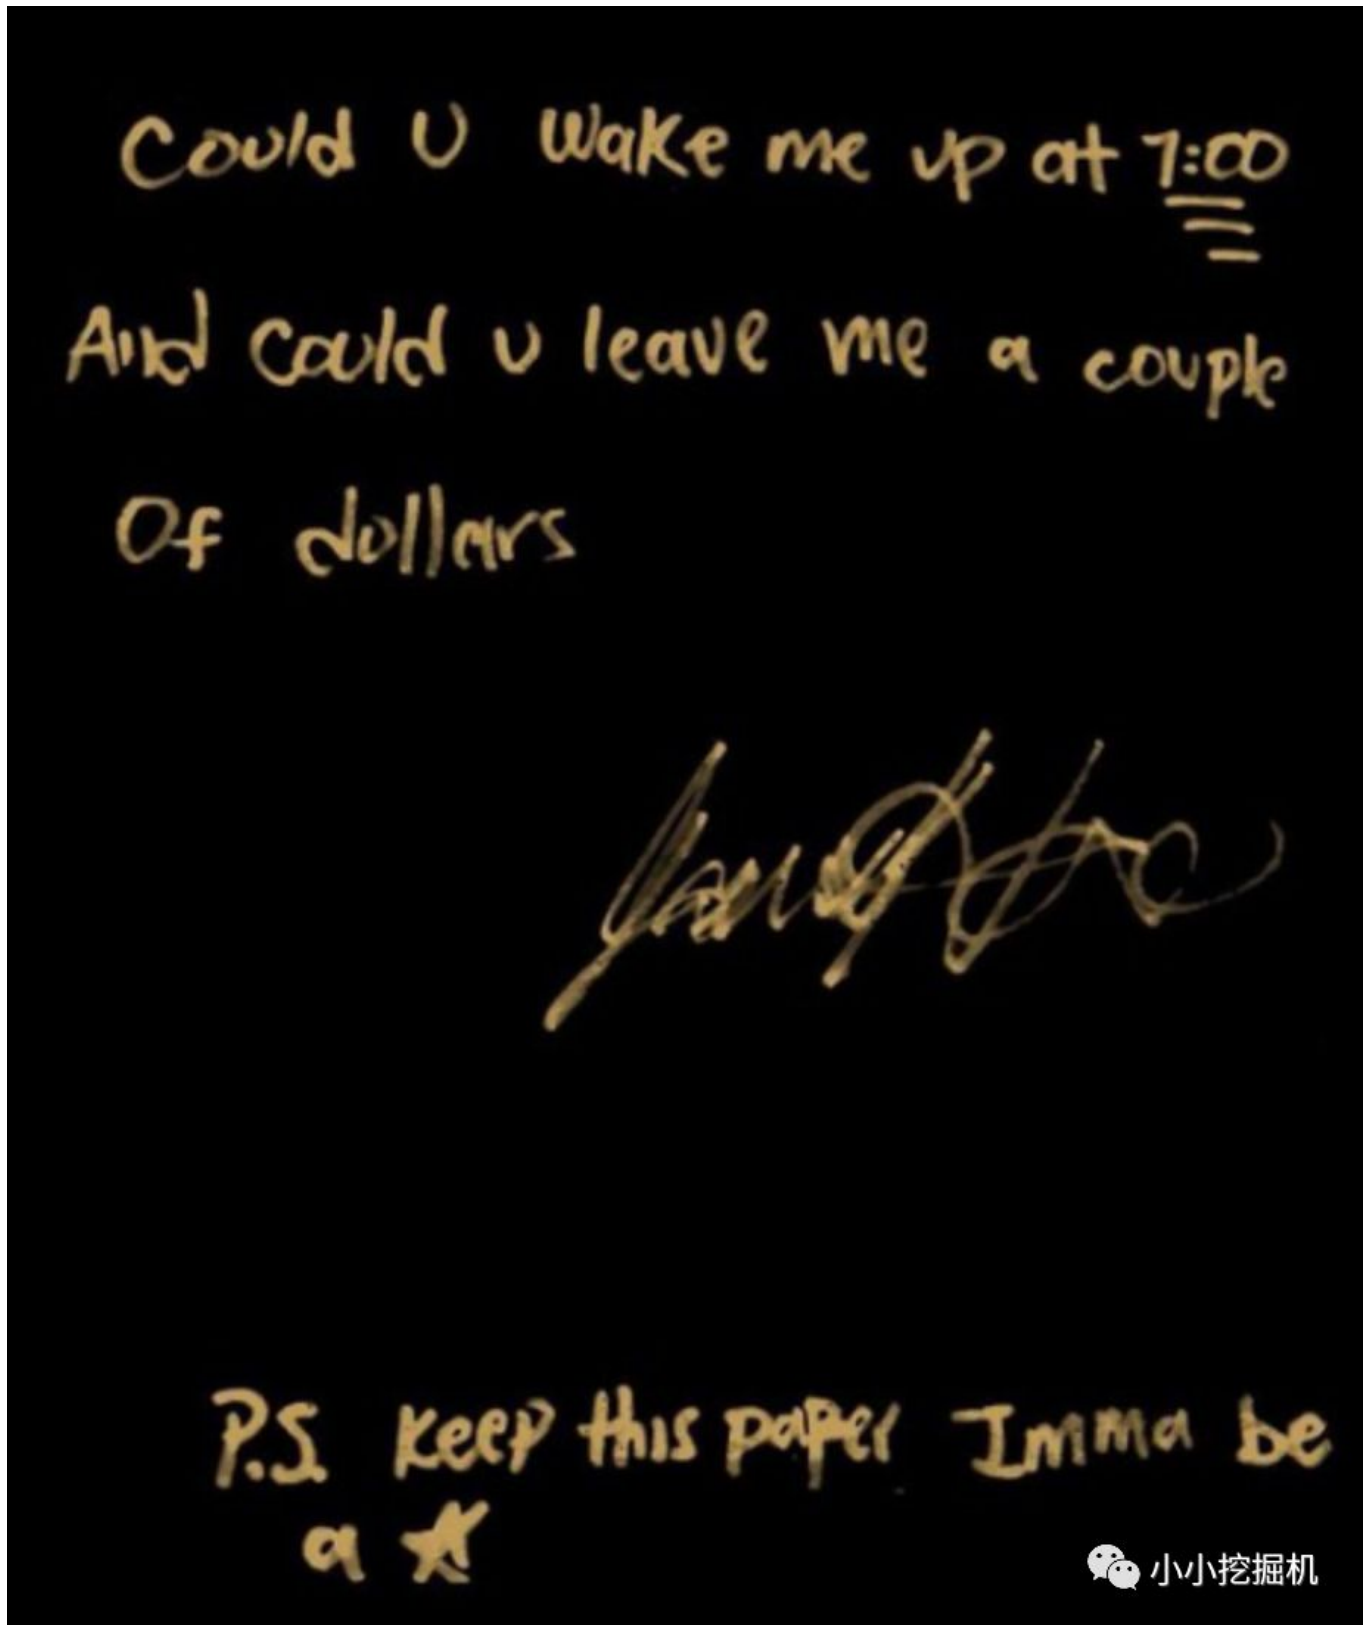 Could U wake me up at 7:00
And could u leave me a couple
Of dollars
P.S. keep this paper Imma be
a ★
小小挖掘机